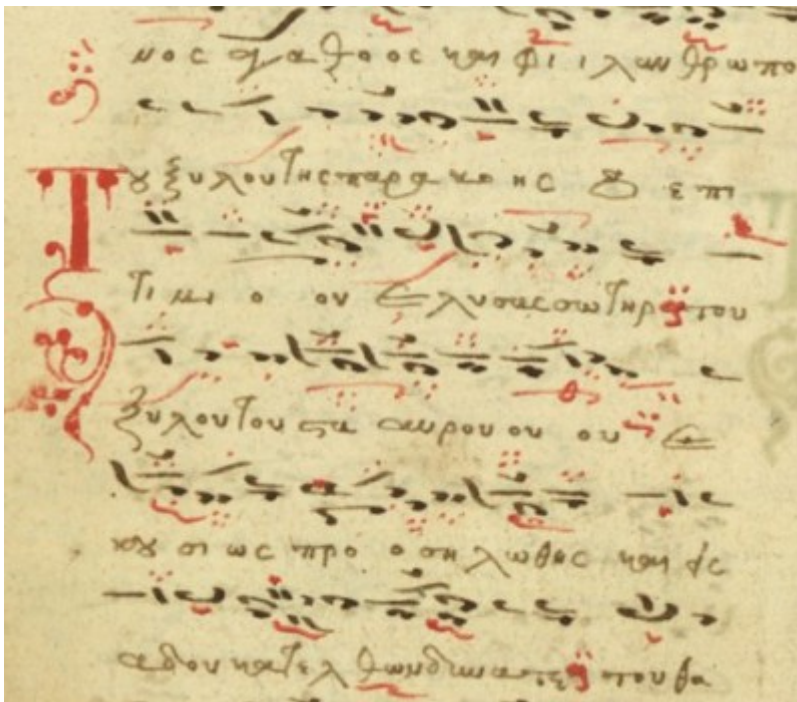 νος αγαθοος και φιιλανθρωπο
Τȣ ξυλου της παρακοης ȣ επι
τιμιο ον ελυσας σωτηρ του
ξυλου του σταυρου ου ου ε
κȣσιως προ οσηλωθης και εις
αδου κατελθων δυνατε του θα